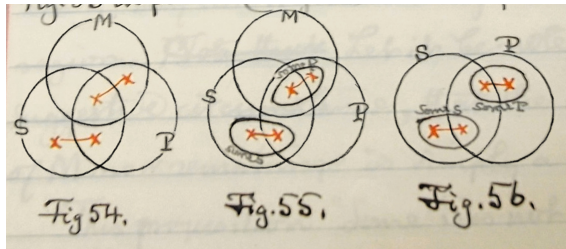 M
S
P
Fig 54.
M
some P
S
P
some S
Fig. 55.
S
P
some S
some P
Fig. 56.